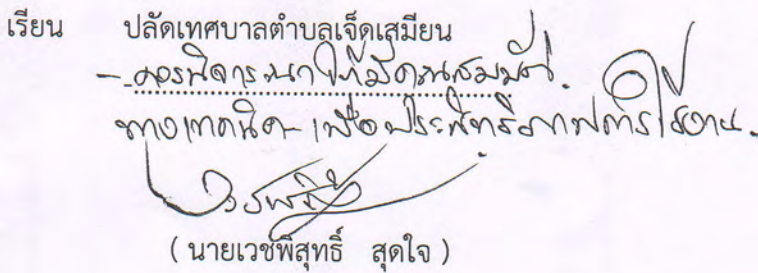 เรียน ปลัดเทศบาลตำบลเจ็ดเสมียน
- ควรพิจารณาให้มี
ทางเทคนิค เพื่อประสิทธิภาพการใช้งาน.
( นายเวชพิสุทธิ์ สุดใจ )